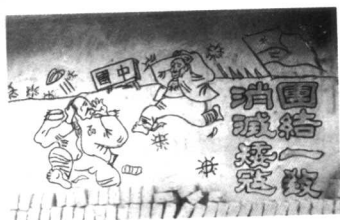 中國
團結一致
消滅矮寇